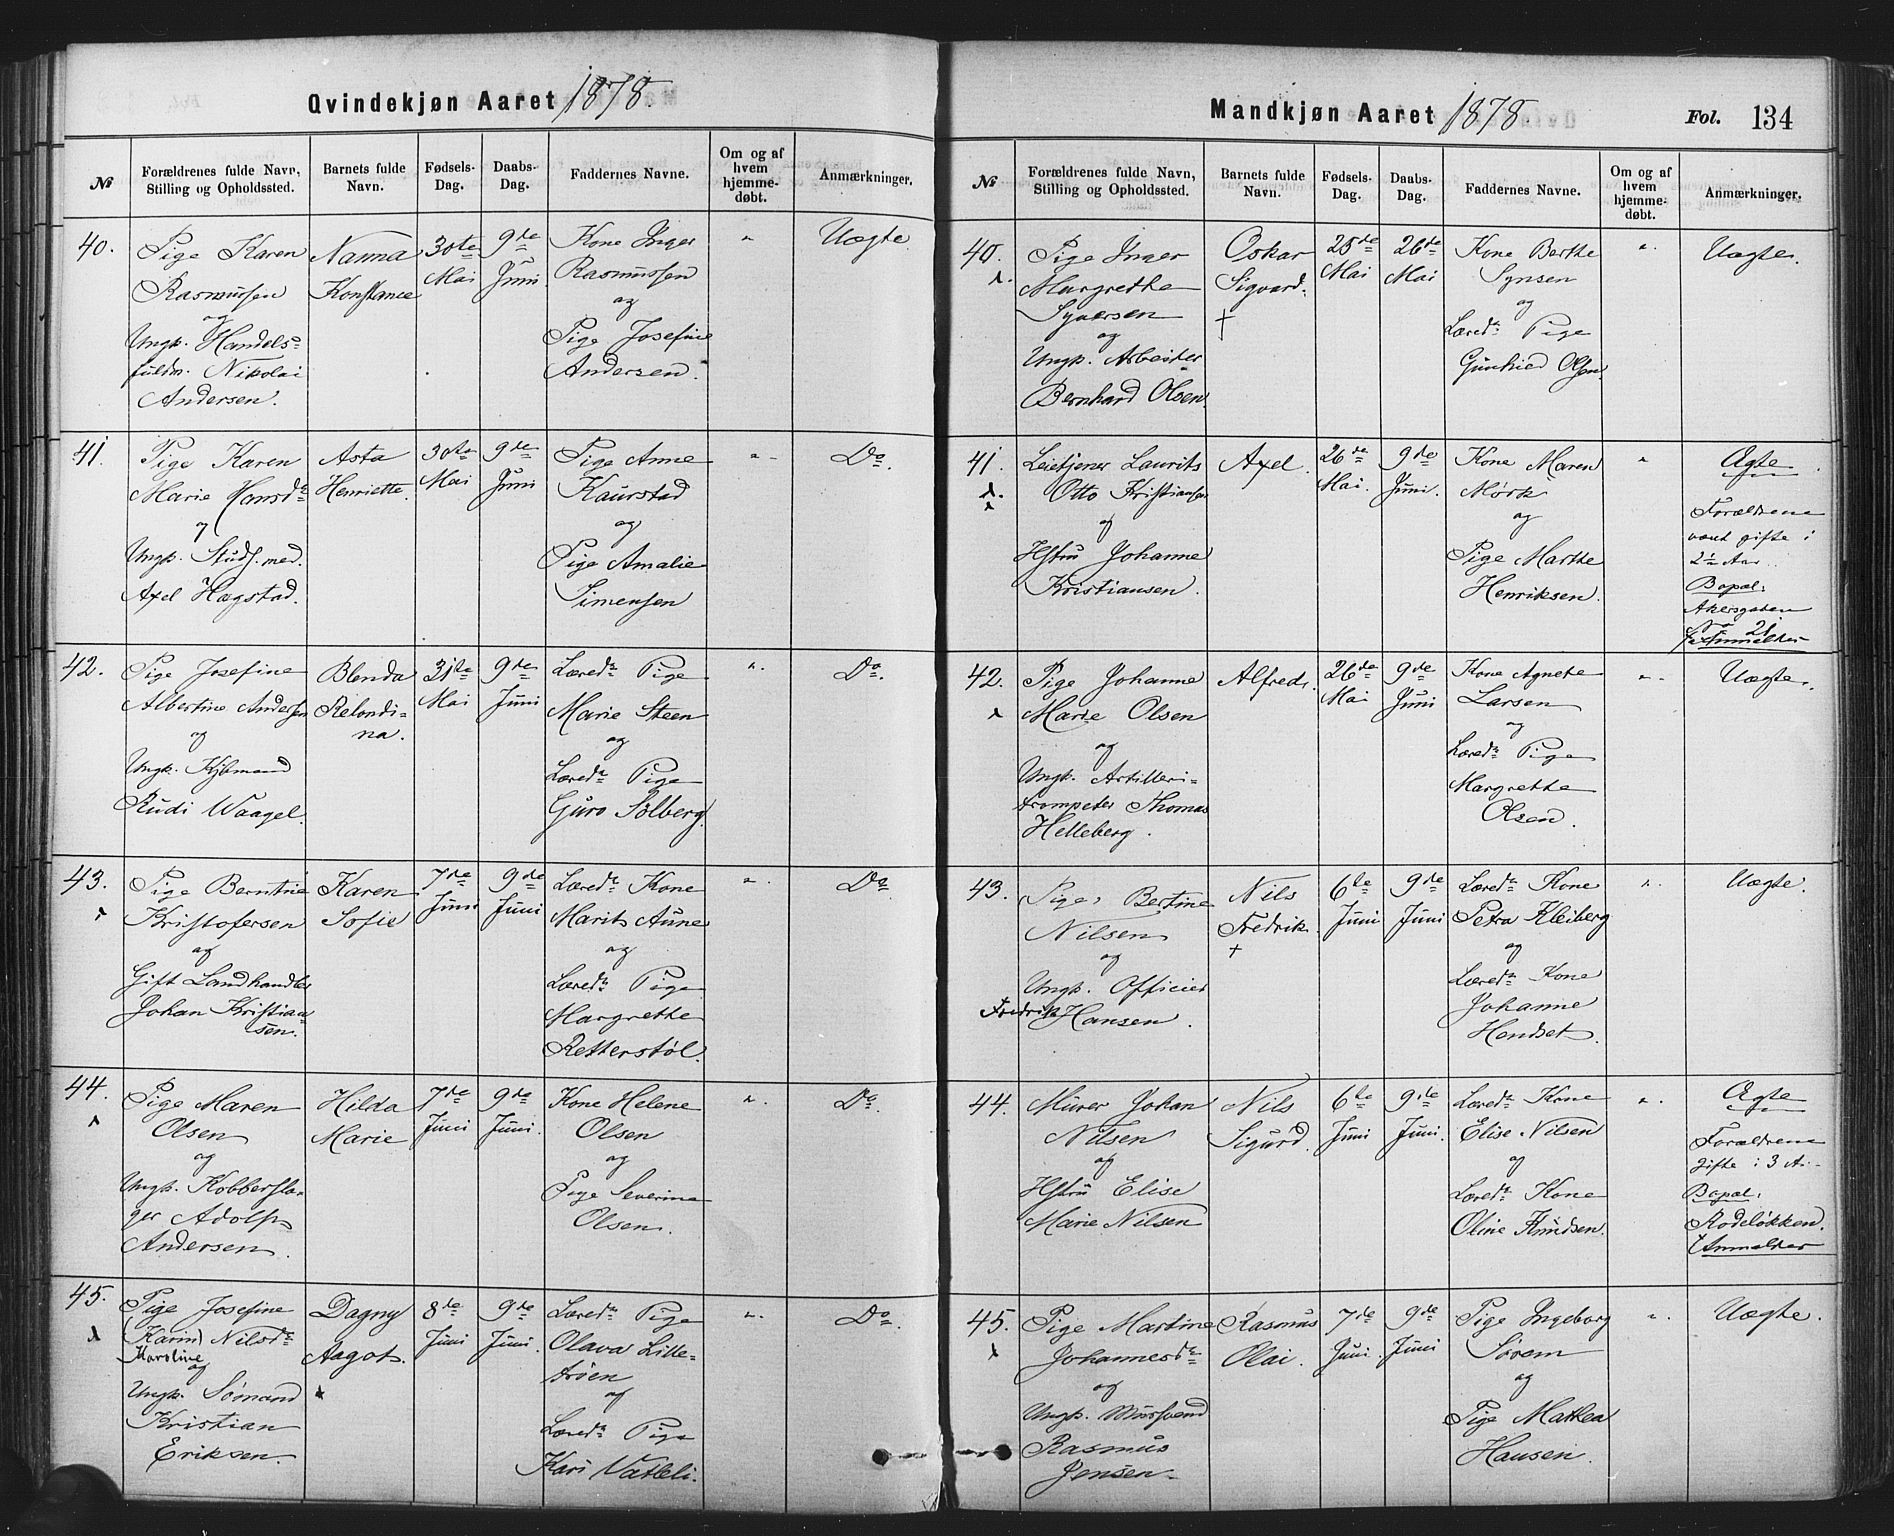 Qvindekjøn Aaret 1878.
№
Forældrenes fulde Navn,
Stilling og Opholdssted.
Barnets fulde
Navn.
Fødsels-
Dag.
Daabs-
Dag.
Faddernes Navne.
Om og af
hvem
hjemme-
døbt.
Anmærkninger.
40.
Pige Karen
Rasmussen
og
Ungk. Handels-
fuldm. Nikolai
Andersen.
Nanna
Konstance
30te
Mai
9de
Juni
Kone Inger
Rasmussen
og
Pige Josefine
Andersen.
"
Uægte.
41.
Pige Karen
Marie Hansdr
og
Ungk. Stud. med.
Axel Hagstad.
Asta
Henriette.
30te
Mai
9de
Juni
Pige Anne
Kaurstad
og
Pige Amalie
Simensen
"
Do.
42.
Pige Josefine
Albertine Andersen
og
Ungk. Kjøbmand
Rudi Waagel.
Blenda
Relondi-
na.
31te
Mai
9de
Juni
Læredr Pige
Marie Steen
og
Læredr Pige
Guro Solberg.
"
Do.
43.
Pige Berntine
Kristofersen
og
Gift Landhandler
Johan Kristian-
sen.
Karen
Sofie
7de
Juni
9de
Juni
Læredr Kone
Marit Aune
og
Læredr Pige
Margrethe
Retterstøl.
"
Do
44.
Pige Maren
Olsen
og
Ungk. Kobbersla-
ger Adolf
Andersen.
Hilda
Marie
7de
Juni
9de
Juni.
Kone Helene
Olsen
og
Pige Severine
Olsen.
"
Do.
45.
Pige Josefine
(Karin) Nilsdr
Karoline
og
Ungk. Sømand
Kristian
Eriksen.
Dagny
Aagot.
8de
Juni
9de
Juni.
Læredr Pige
Olava Lille-
trøen
og
Læredr Pige
Kari Vatleli.
"
Do.
Mandkjøn Aaret 1878
Fol. 134
№
Forældrenes fulde Navn,
Stilling og Opholdssted.
Barnets fulde
Navn.
Fødsels-
Dag.
Daabs-
Dag.
Faddernes Navne.
Om og af
hvem
hjemme-
døbt.
Anmærkninger.
40.
Pige Inger
Margrethe
Syversen
og
Ungk. Arbeider
Bernhard Olsen.
Oskar
Sigvard.
†
25de
Mai
26de
Mai
Kone Berthe
Synsen
og
Læredr Pige
Gunhild Olsen.
"
Uægte.
41.
Leietjener Laurits
Otto Kristiansen
og
Hstru Johanne
Kristiansen.
Axel.
26de
Mai.
9de
Juni.
Kone Maren
Mørk
og
Pige Marthe
Henriksen.
"
Ægte
Forældrene
været gifte i
2½ Aar.
Bopæl.
Akersgaden
No 21
Anmelder
42.
Pige Johanne
Marie Olsen
og
Ungk. Artilleri-
trompeter Thomas
Helleberg.
Alfred.
26de
Mai
9de
Juni
Kone Agnete
Larsen
og
Læredr Pige
Margrethe
Olsen.
"
Uægte.
43.
Pige Bertine
Nilsen
og
Ungk. Officier
Fredrik Hansen.
Nils
Fredrik.
†
6te
Juni
9de
Juni
Læredr Kone
Petra Kleiberg
og
Læredr Kone
Johanne
Hendset.
"
Uægte.
44.
Murer Johan
Nilsen
og
Hstru Elise
Marie Nilsen
Nils
Sigurd.
6te
Juni
9de
Juni.
Læredr Kone
Elise Nilsen
og
Læredr Kone
Oline Knudsen.
"
Ægte
Forældrene
gifte i 3 A.
Bopæl.
Rodeløkken.
Anmelder
45.
Pige Martine
Johannesdr
og
Ungk. Mursvend
Rasmus
Jensen.
Rasmus
Olai.
7de
Juni.
9de
Juni
Pige Ingeborg
Sørem
og
Pige Mathea
Hansen.
"
Uægte.